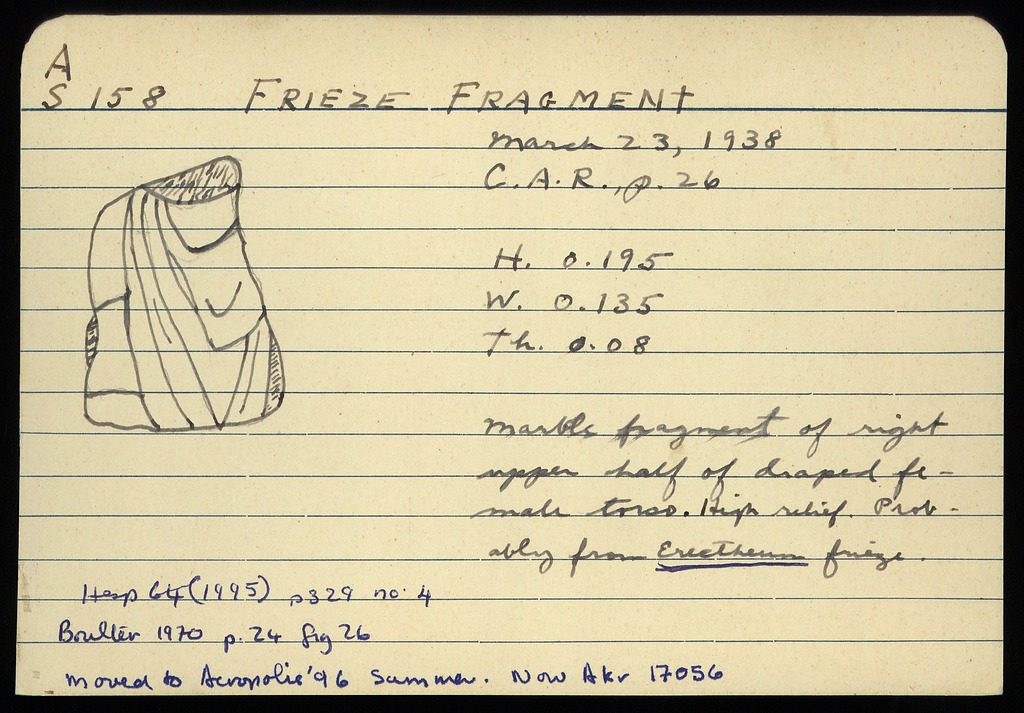 A
S 158 FRIEZE FRAGMENT
March 23, 1938
C.A.R., p. 26
H. 0.195
W. 0.135
Th. 0.08
Marble fragment of right
upper half of draped fe-
male torso. High relief. Prob-
ably from Erectheum frieze.
Hesp 64 (1995) p329 no. 4
Boulter 1970 p. 24 fig 26
moved to Acropolis '96 Summer. Now Akr 17056